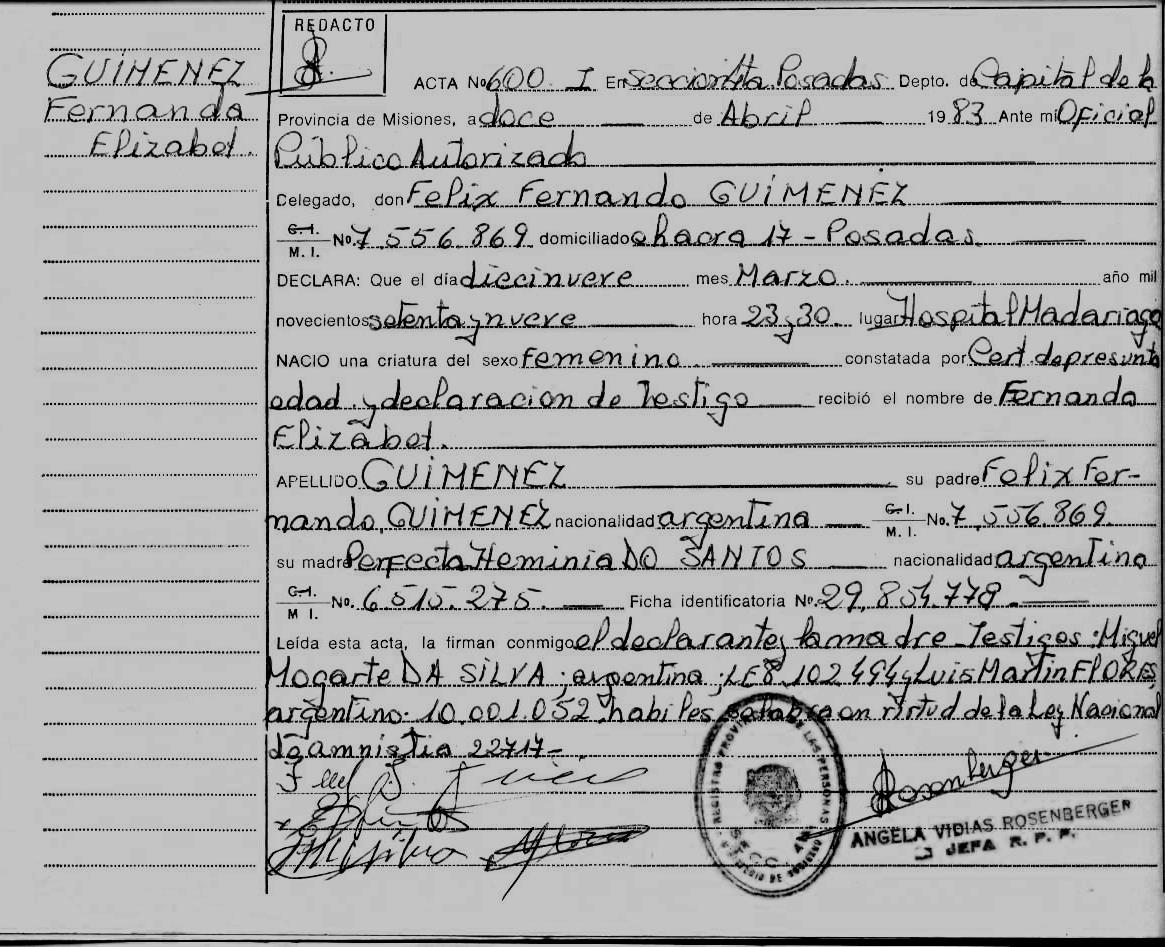 GUIMENEZ
Fernanda
Elizabet.
REDACTO
ACTA No 600 I En Sección 4ta Posadas Depto. de Capital de la
Provincia de Misiones, a doce de Abril 1983 Ante mi Oficial
Público Autorizado
Delegado, don Felix Fernando GUIMENEZ
C.I.
M. I. No. 7.556.869 domiciliado chacra 17 - Posadas.
DECLARA: Que el día diecinueve mes Marzo. año mil
novecientos setenta y nueve hora 23 y 30 lugar Hospital Madariaga
NACIO una criatura del sexo femenino constatada por Cert. de presunta
edad y declaracion de Testigo recibió el nombre de Fernanda
Elizabet.
APELLIDO GUIMENEZ su padre Felix Fer-
nando GUIMENEZ nacionalidad argentina C.I.
M. I. No. 7.556.869
su madre Perfecta Heminia DO SANTOS nacionalidad argentina
C.I.
M I. No. 6.515.275. Ficha identificatoria No. 29.854.778.
Leída esta acta, la firman conmigo el declarante y la madre Testigos: Miguel
Mogarte DA SILVA; argentina; LE 8.102.494 y Luis Martin FLORES
argentino. 10.001.052, habiles se labra en virtud de la Ley Nacional
de amnistia 22717-
Rosenberger
REGISTRO PROVINCIAL DE LAS PERSONAS
SECC. 4ta
ANGELA VIDIAS ROSENBERGER
JEFA R. P. P.